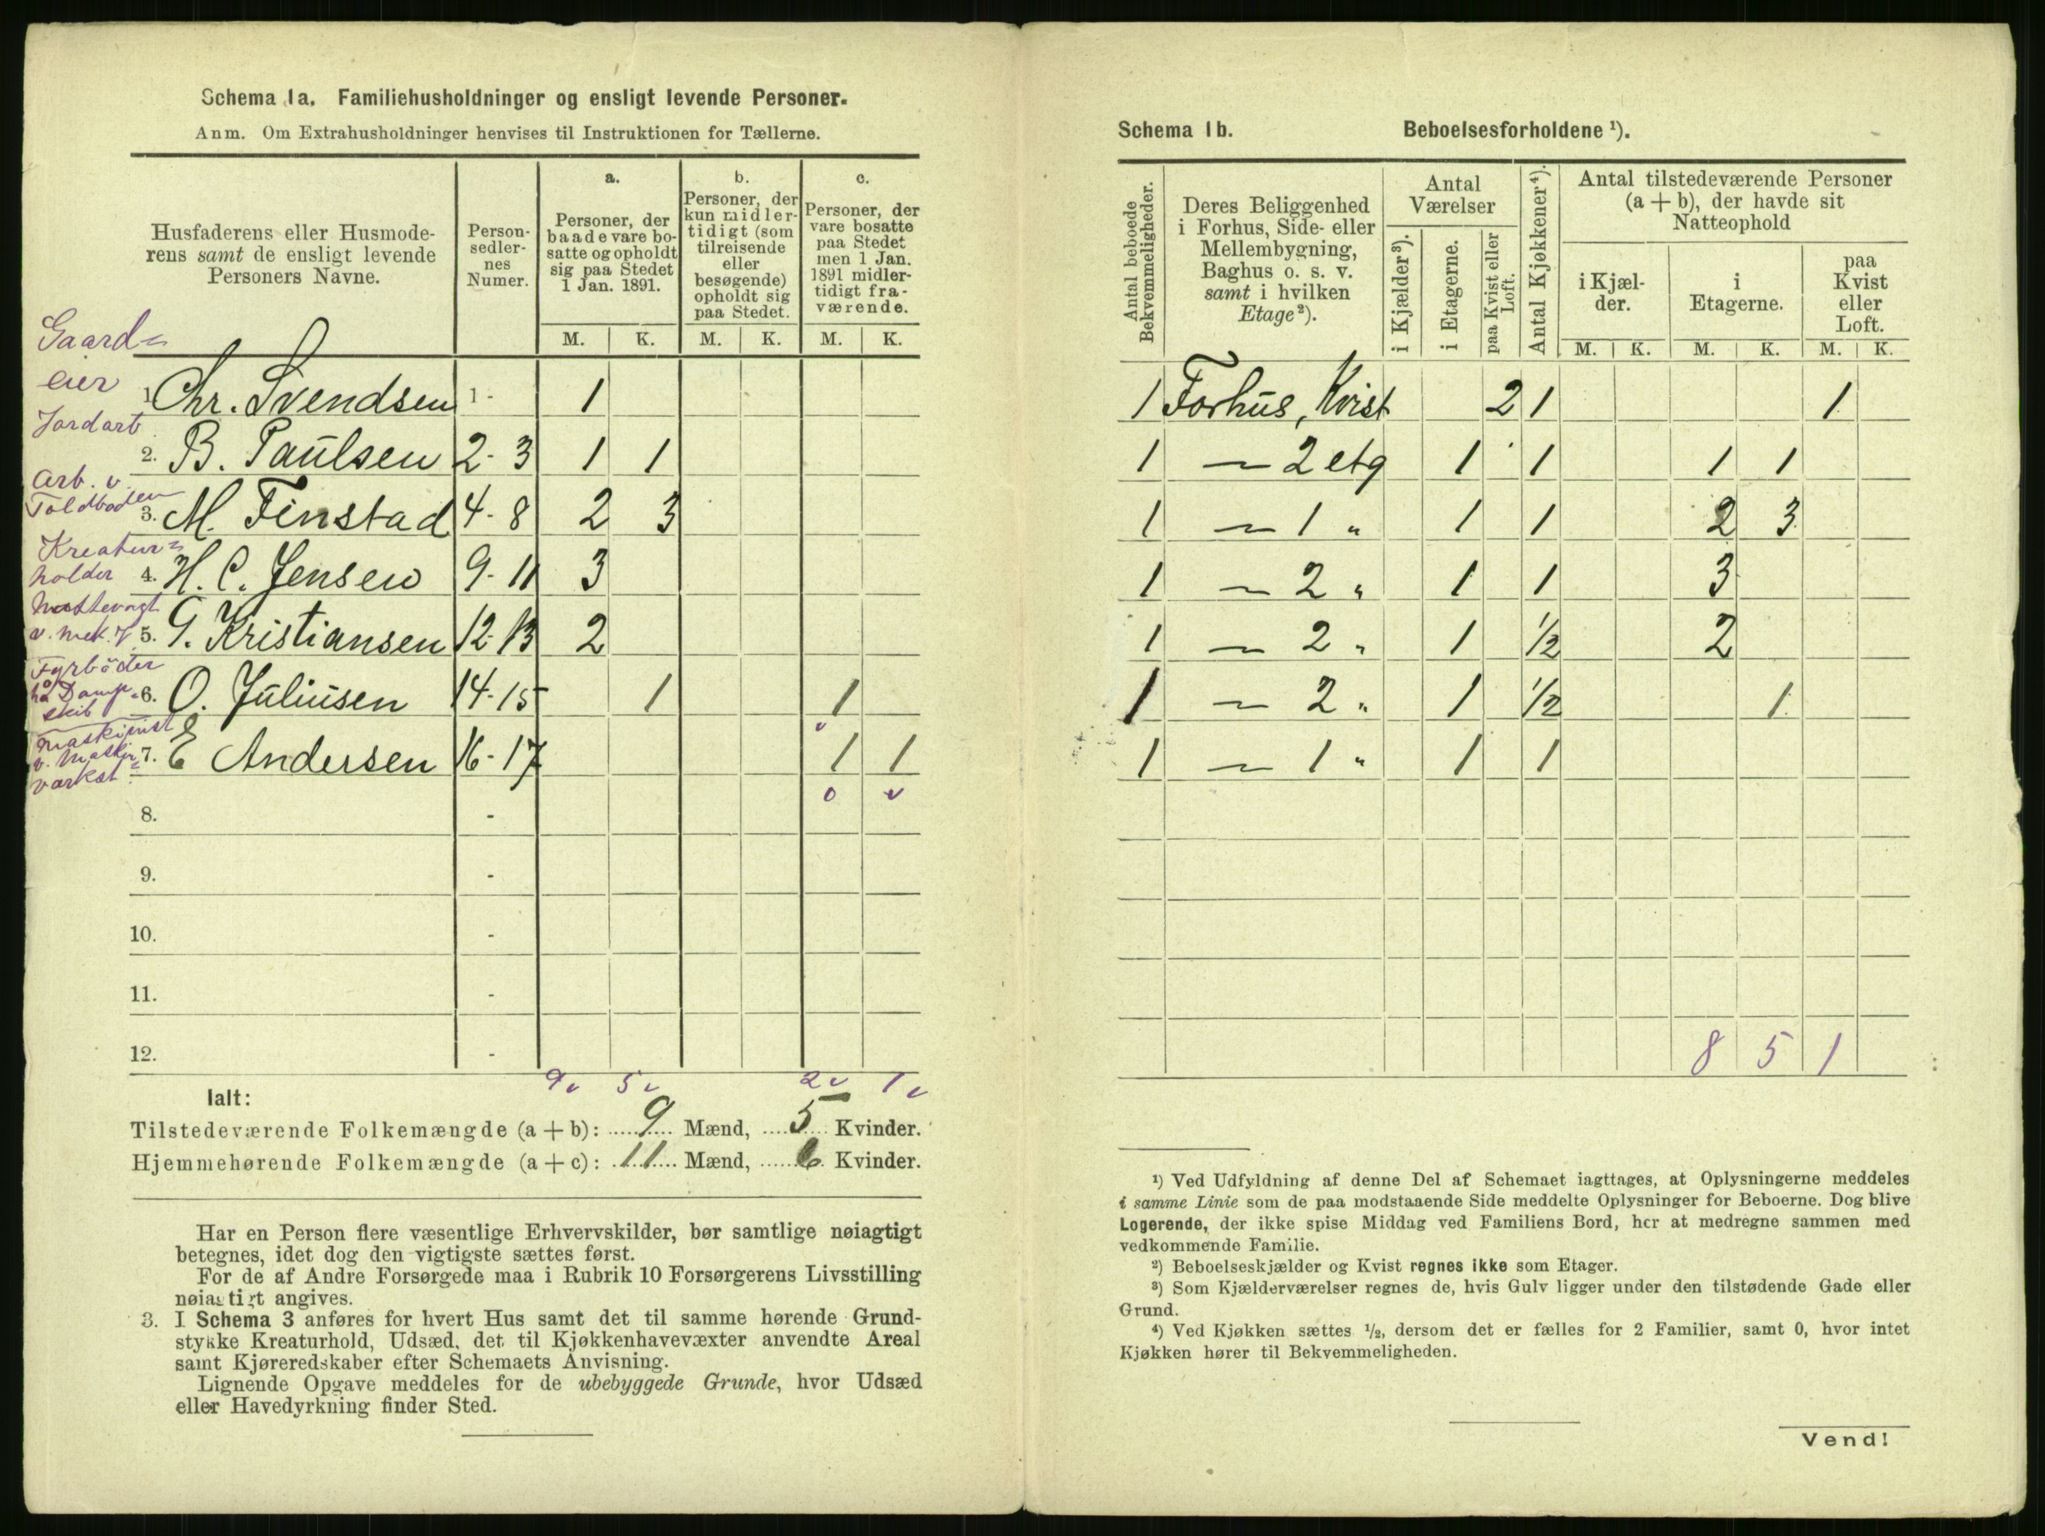 Schema 1a. Familiehusholdninger og ensligt levende Personer.
Anm. Om Extrahusholdninger henvises til Instruktionen for Tællerne.
Husfaderens eller Husmode-
rens samt de ensligt levende
Personers Navne.
Person-
sedler-
nes
Numer.
a.
Personer, der
baade vare bo-
satte og opholdt
sig paa Stedet
1 Jan. 1891.
b.
Personer, der
kun midler-
tidigt (som
tilreisende
eller
besøgende)
opholdt sig
paa Stedet.
c.
Personer, der
vare bosatte
paa Stedet
men 1 Jan.
1891 midler-
tidigt fra-
værende.
M. K. M. K. M. K.
Gaard=
eier
1 Chr. Svendsen 1 - 1
Jordarb.
2. B. Paulsen 2 - 3 1 1
Arb. v.
Toldboden
3. M. Finstad 4 - 8 2 3
Kreatur=
holder
4. H. C. Jensen 9 - 11 3
Nattevagt
v. mek.
5. G. Kristiansen 12 - 13 2
Fyrbøder
på Damp-
skib
6. O. Juliusen 14 - 15 1 1
v
Maskinist
v. Maskin=
værkst.
7. E Andersen 16 - 17 1 1
o v
8. -
9. -
10. -
11. -
12. -
9 v 5 v 2 v 1 v
Ialt:
Tilstedeværende Folkemængde (a + b): 9 Mænd, 5 Kvinder.
Hjemmehørende Folkemængde (a + c): 11 Mænd, 6 Kvinder.
Har en Person flere væsentlige Erhvervskilder, bør samtlige nøiagtigt
betegnes, idet dog den vigtigste sættes først.
For de af Andre Forsørgede maa i Rubrik 10 Forsørgerens Livsstilling
nøiagtigt angives.
3. I Schema 3 anføres for hvert Hus samt det til samme hørende Grund-
stykke Kreaturhold, Udsæd, det til Kjøkkenhavevæxter anvendte Areal
samt Kjøreredskaber efter Schemaets Anvisning.
Lignende Opgave meddeles for de ubebyggede Grunde, hvor Udsæd
eller Havedyrkning finder Sted.
Schema 1b. Beboelsesforholdene ¹).
Antal beboede
Bekvemmeligheder.
Deres Beliggenhed
i Forhus, Side- eller
Mellembygning,
Baghus o. s. v.
samt i hvilken
Etage²).
Antal
Værelser
i Kjælder³).
i Etagerne.
paa Kvist eller
Loft.
Antal Kjøkkener⁴).
Antal tilstedeværende Personer
(a + b), der havde sit
Natteophold
i Kjæl-
der.
i
Etagerne.
paa
Kvist
eller
Loft.
M. K. M. K. M. K.
1 Forhus, Kvist 2 1 1
1 — 2 etg 1 1 1 1
1 — 1 " 1 1 2 3
1 — 2 " 1 1 3
1 — 2 " 1 1/2 2
1 — 2 " 1 1/2 1
1 — 1 " 1 1
8 5 1
¹) Ved Udfyldning af denne Del af Schemaet iagttages, at Oplysningerne meddeles
i samme Linie som de paa modstaaende Side meddelte Oplysninger for Beboerne. Dog blive
Logerende, der ikke spise Middag ved Familiens Bord, her at medregne sammen med
vedkommende Familie.
²) Beboelseskjælder og Kvist regnes ikke som Etager.
³) Som Kjælderværelser regnes de, hvis Gulv ligger under den tilstødende Gade eller
Grund.
⁴) Ved Kjøkken sættes ½, dersom det er fælles for 2 Familier, samt 0, hvor intet
Kjøkken hører til Bekvemmeligheden.
Vend!